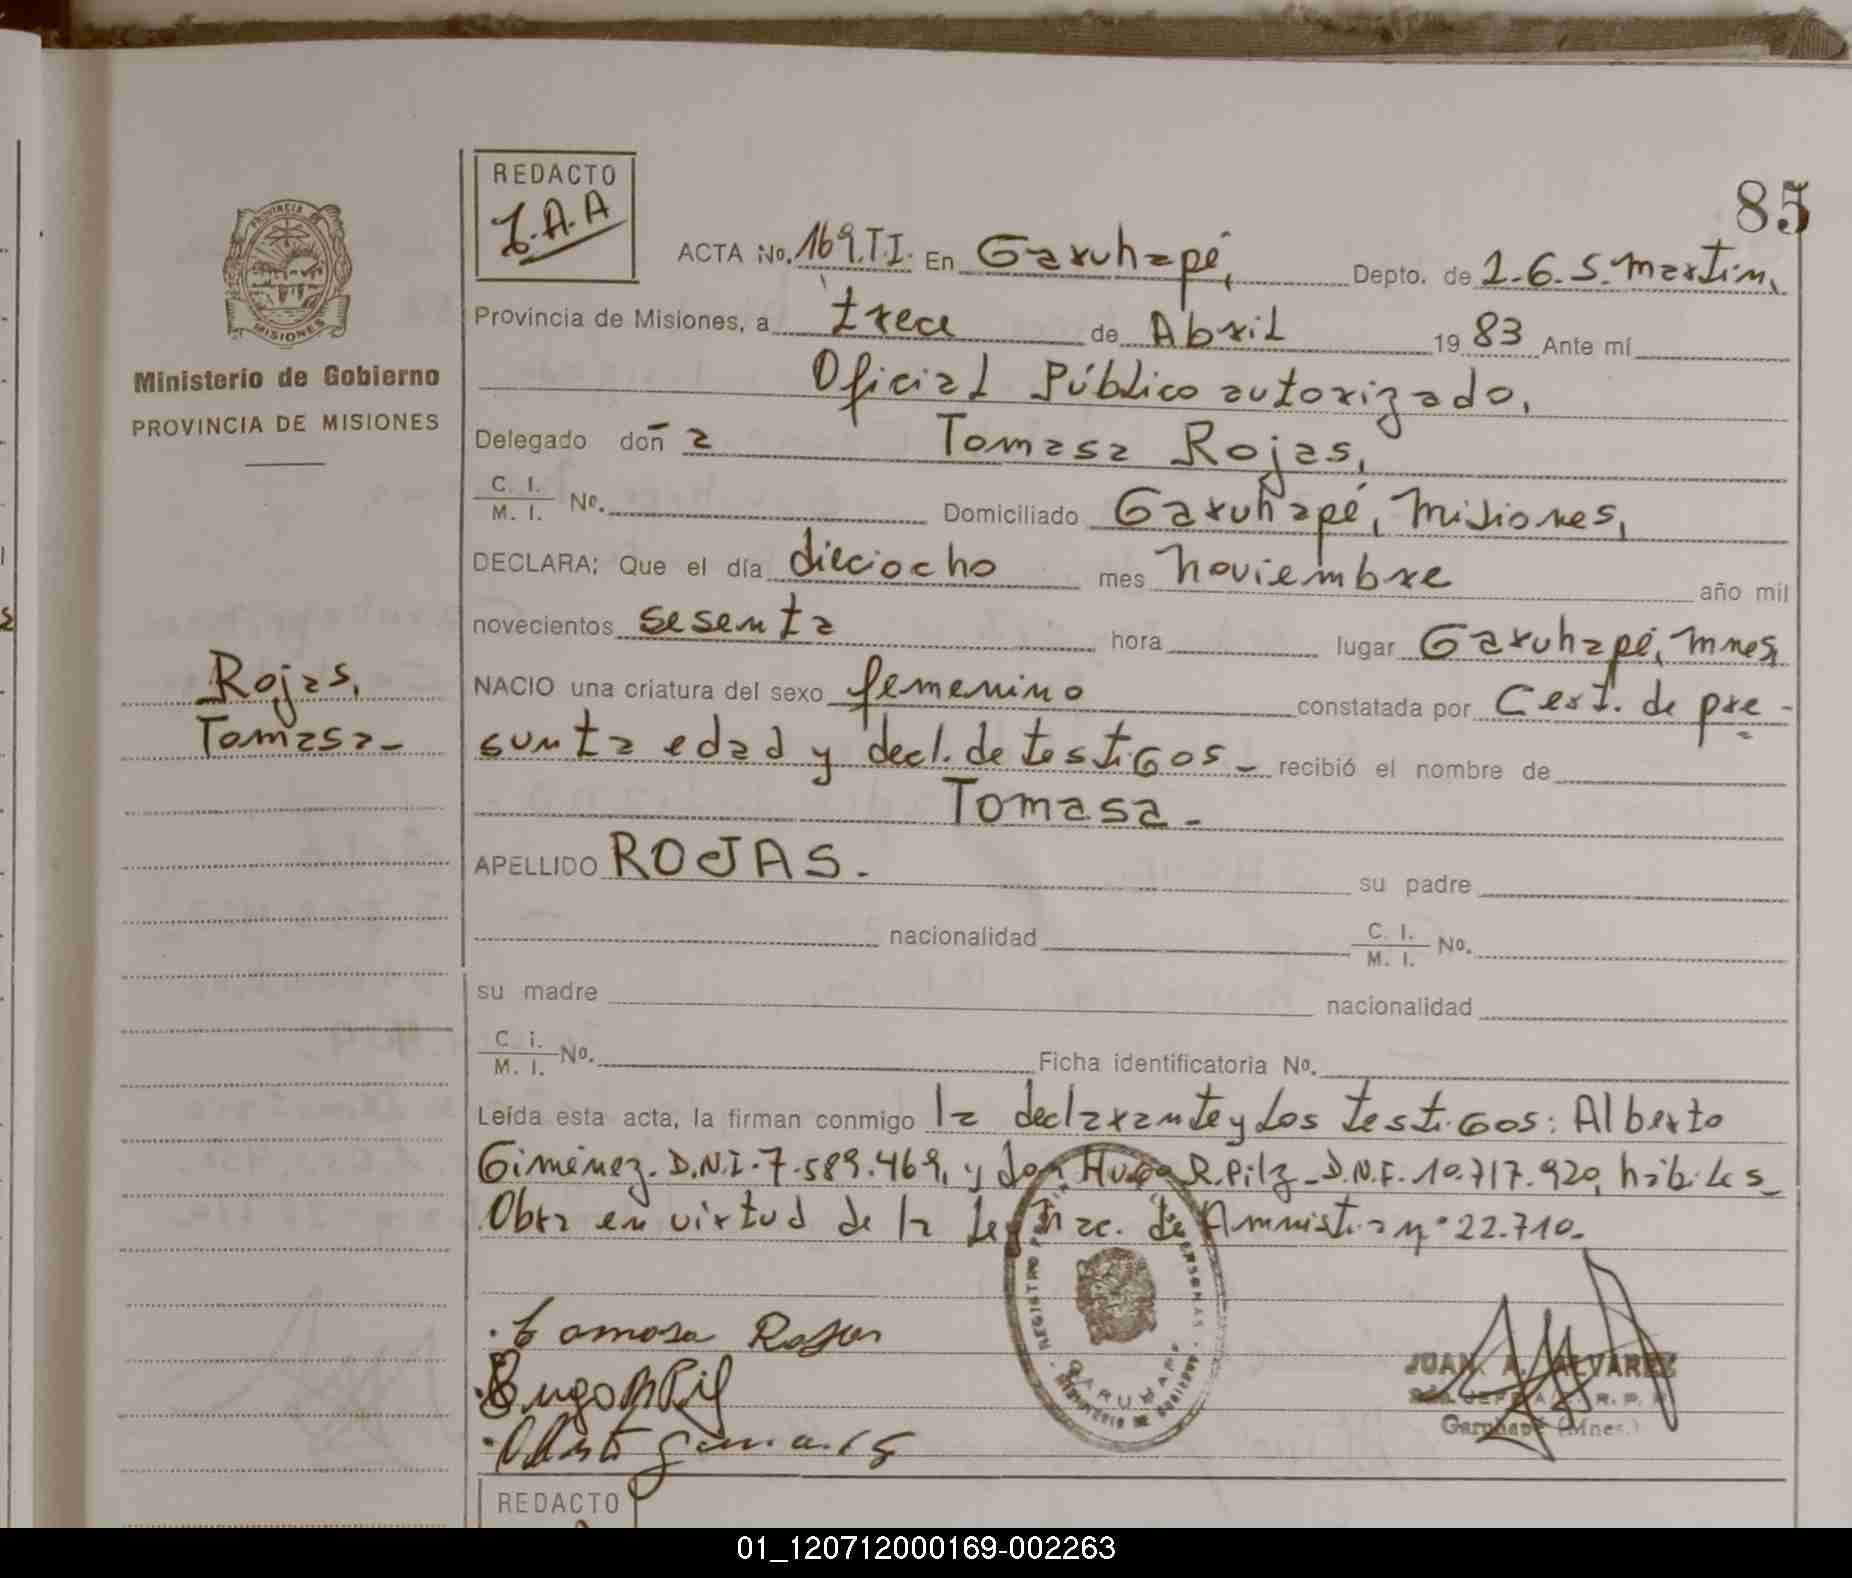 85
REDACTO
J.A.A
ACTA No. 169.T.I. En Garuhapé, Depto. de L.G.S.Martín,
Provincia de Misiones, a trece de Abril 19 83 Ante mí
Oficial Público autorizado,
Delegado doñ a Tomasa Rojas,
C. I. / M. I. No. Domiciliado Garuhapé, Misiones,
DECLARA: Que el día dieciocho mes noviembre año mil
novecientos sesenta hora lugar Garuhapé, Mnes,
NACIO una criatura del sexo femenino constatada por Cert. de pre-
sunta edad y decl. de testigos- recibió el nombre de
Tomasa-
APELLIDO ROJAS. su padre
nacionalidad C. I. / M. I. No.
su madre nacionalidad
C. i. / M. I. No. Ficha identificatoria No.
Leída esta acta, la firman conmigo la declarante y los testigos: Alberto
Giménez. D.N.I. 7.589.469, y don Hugo R. Pilz- D.N.I. 10.717.920, hábiles-
Obra en virtud de la Ley Nac. de Amnistia nº 22.710-
PROVINCIA DE
MISIONES
Ministerio de Gobierno
PROVINCIA DE MISIONES
Rojas,
Tomasa-
Tomasa Rojas
JUAN A. ALVAREZ
Garuhapé (Mnes.)
REGISTRO PERSONAS
GARUHAPE
REDACTO
01_120712000169-002263